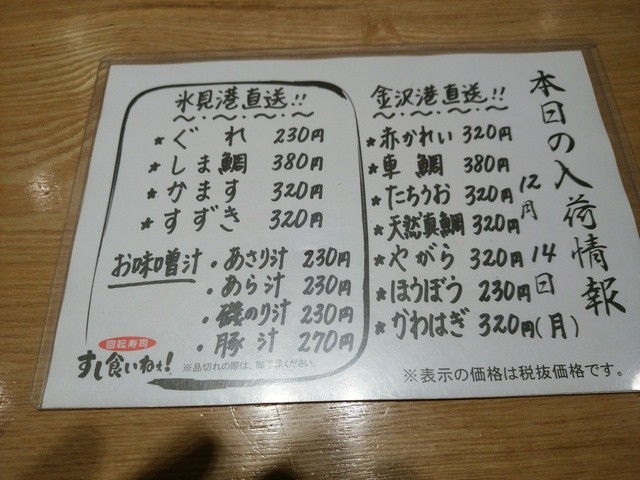 本日の入荷情報
12月14日(月)
金沢港直送!!
★赤かれい 320円
★車鯛 380円
★たちうお 320円
★天然真鯛 320円
★やがら 320円
★ほうぼう 230円
★かわはぎ 320円
氷見港直送!!
★ぐれ 230円
★しま鯛 380円
★かます 320円
★すずき 320円
お味噌汁・あさり汁 230円
・あら汁 230円
・磯のり汁 230円
・豚汁 270円
回転寿司
すし食いねぇ!
※品切れの際は、御了承ください。
※表示の価格は税抜価格です。